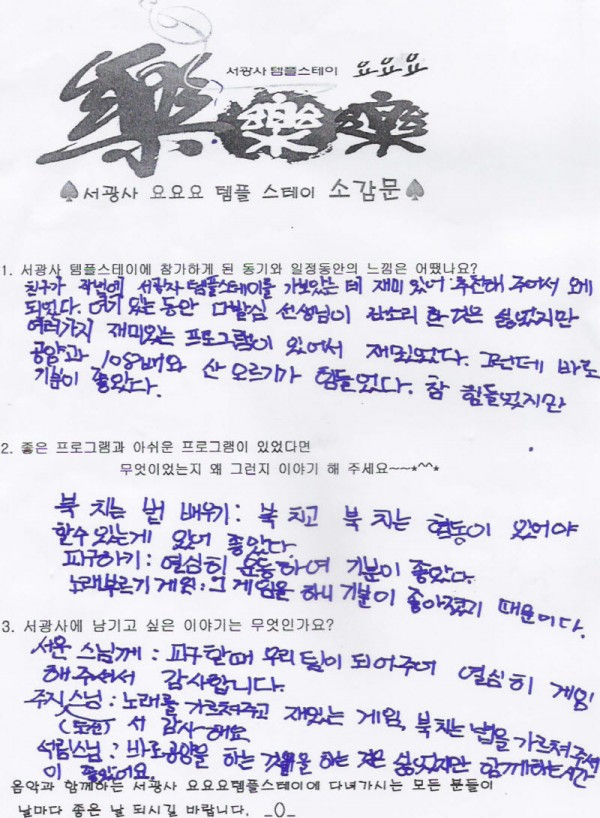 서광사 템플스테이 요요요
樂 樂 樂
♠서광사 요요요 템플 스테이 소감문♠
1. 서광사 템플스테이에 참가하게 된 동기와 일정동안의 느낌은 어땠나요?
친구가 저번에 서광사 템플스테이를 가보았는 데 재미 있어 추천해 주어서 오게
되었다. 여기 있는 동안 다발심 선생님이 잔소리 한것은 싫었지만
여러가지 재미있는 프로그램이 있어서 재밌었다. 그런데 바로
공양과 108배와 산 오르기가 힘들었다. 참 힘들었지만
기분이 좋았다.
2. 좋은 프로그램과 아쉬운 프로그램이 있었다면
무엇이었는지 왜 그런지 이야기 해 주세요~~*^^*
북 치는 법 배우기: 북 치고 북 치는 협동이 있어야
할수 있는게 있어 좋았다.
피구하기: 열심히 운동하여 기분이 좋았다.
노래부르기 게임: 그 게임을 하니 기분이 좋아졌기 때문이다.
3. 서광사에 남기고 싶은 이야기는 무엇인가요?
서운 스님께: 피구할때 우리 팀이 되어주어 열심히 게임
해 주셔서 감사합니다.
주지스님: 노래를 가르쳐주고 재밌는 게임, 북치는 법을 가르쳐주셔
(도신) 서 감사해요
석림스님: 바로공양을 하는 것을 하는 것은 싫었지만 함께하는시간
이 좋았어요.
음악과 함께하는 서광사 요요요템플스테이에 다녀가시는 모든 분들이
날마다 좋은 날 되시길 바랍니다. _()_